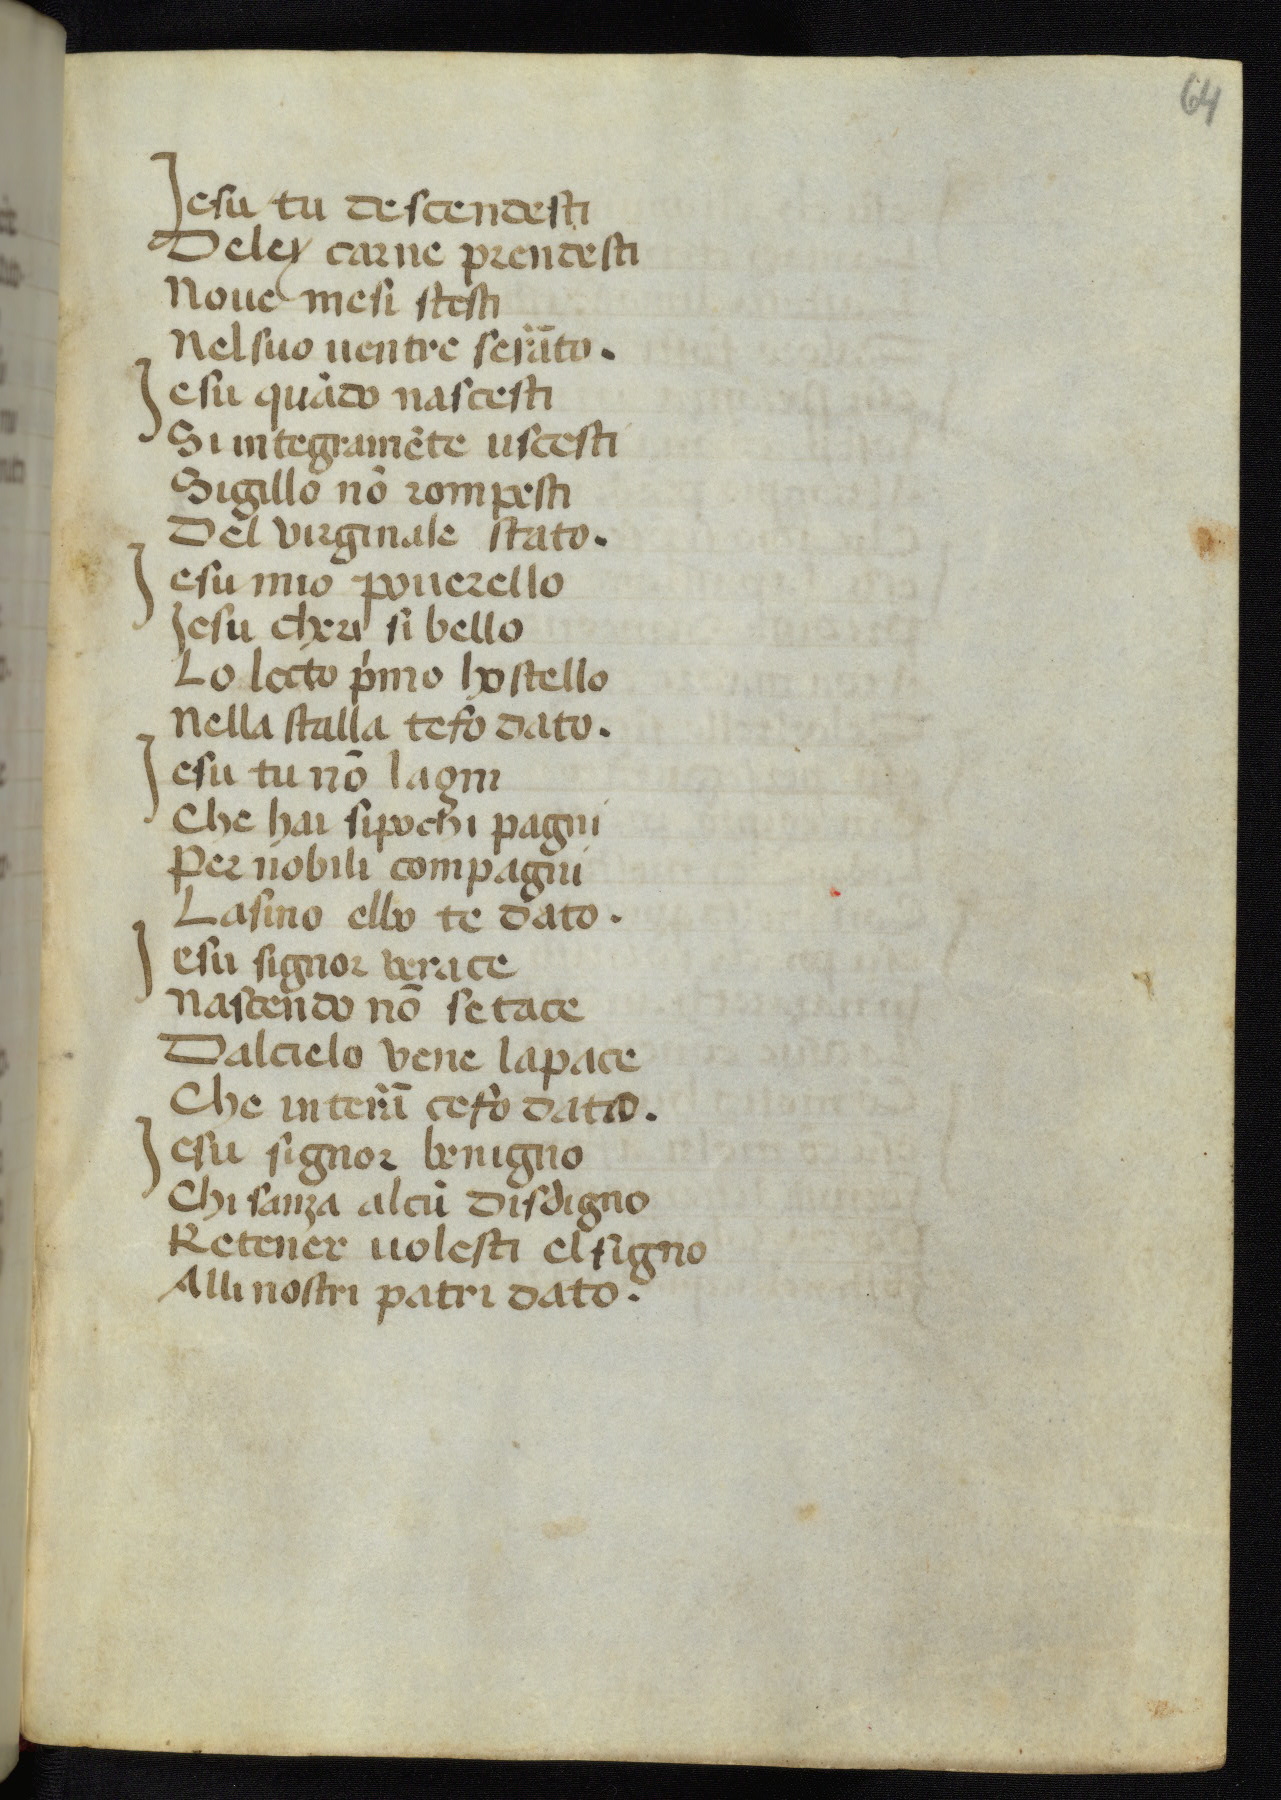 64
Jesu tu descendesti
De ley carne prendesti
Noue mesi stesti
Nel suo uentre serãto.
Jesu quãdo nascesti
Si integramẽte uscesti
Sigillo nõ rompesti
Del virginale stato.
Jesu mio pouerello
Jesu cheri si bello
Lo lecto p̃mo hostello
Nella stalla te fo dato.
Jesu tu nõ lagni
Che hai si pochi pagni
Per nobili compagni
Lasino el bo te dato.
Jesu signor verace
Nascendo nõ se tace
Dal cielo vene la pace
Che in terã ce fo dato.
Jesu signor benigno
Chi sanza alcũ disdigno
Retener uolesti el signo
Alli nostri patri dato.